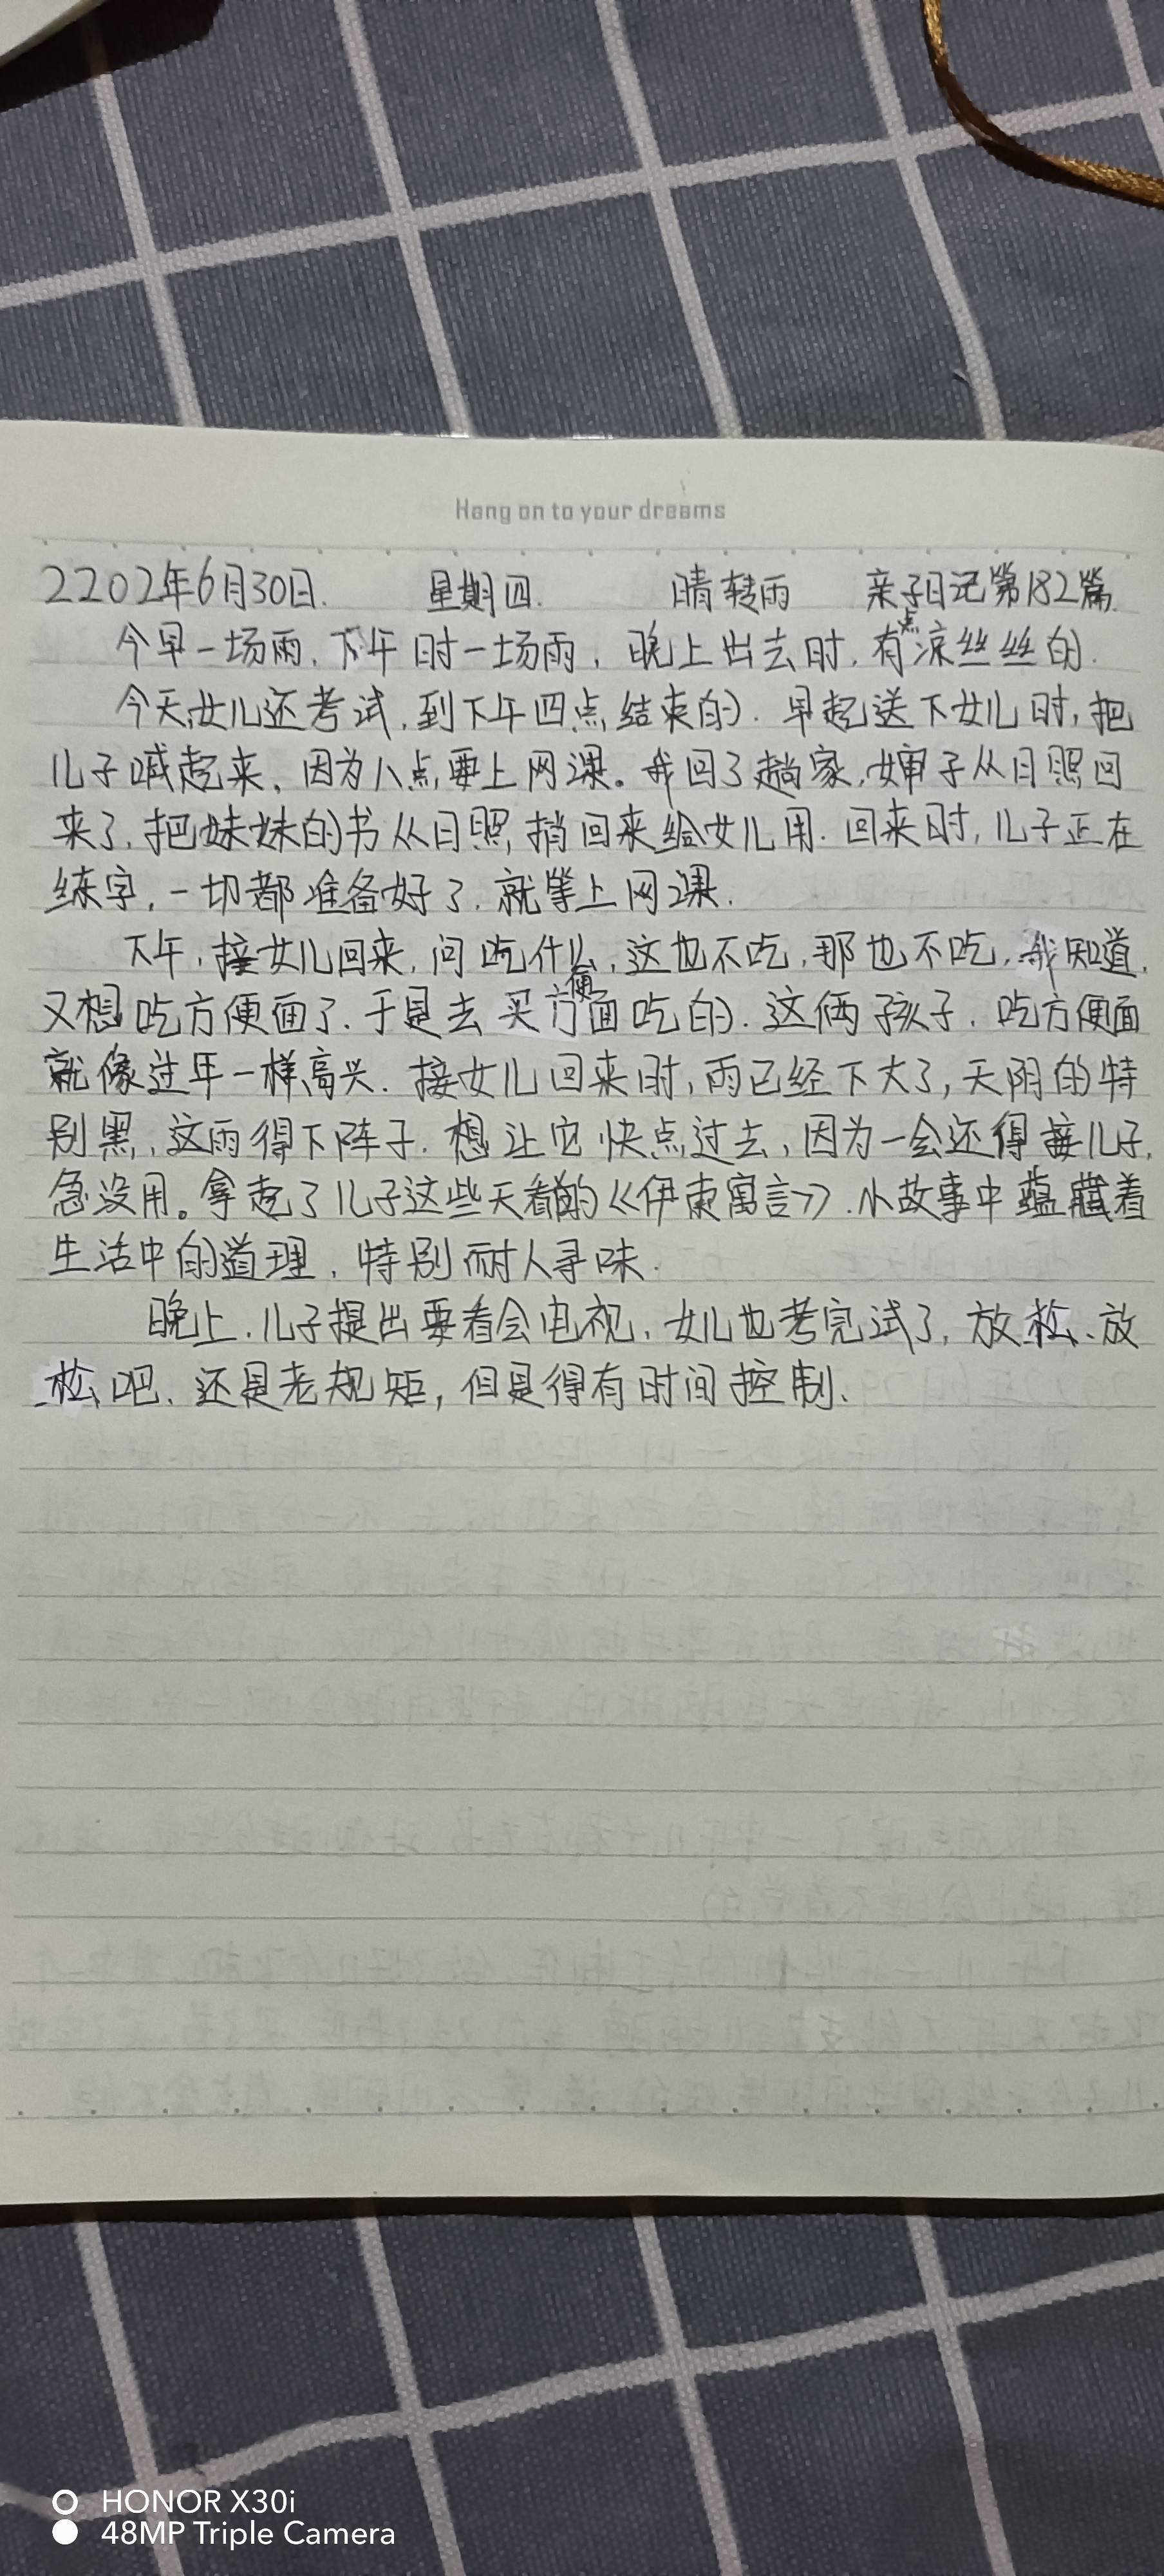 Hang on to your dreams
2202年6月30日. 星期四. 晴转雨 亲子日记第182篇.
今早一场雨,下午时一场雨,晚上出去时,有点凉丝丝的.
今天女儿还考试,到下午四点结束的.早起送下女儿时,把
儿子喊起来,因为八点要上网课。我回了趟家,婶子从日照回
来了,把妹妹的书从日照捎回来给女儿用.回来时,儿子正在
练字,一切都准备好了,就等上网课.
下午,接女儿回来,问吃什么,这也不吃,那也不吃,我知道,
又想吃方便面了.于是去买方便面吃的.这俩孩子,吃方便面
就像过年一样高兴.接女儿回来时,雨已经下大了,天阴的特
别黑,这雨得下阵子.想让它快点过去,因为一会还得接儿子,
急没用。拿起了儿子这些天看的《伊索寓言》.小故事中蕴藏着
生活中的道理,特别耐人寻味.
晚上,儿子提出要看会电视,女儿也考完试了,放松、放
松吧、还是老规矩,但是得有时间控制、
HONOR X30i
48MP Triple Camera